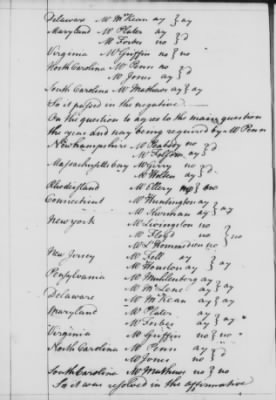 Delaware Mr McKean ay } ay
Maryland Mr Plater ay } d
Mr Forbes no
Virginia Mr Griffin no } no
North Carolina Mr Penn no } d
Mr Jones ay
South Carolina Mr Mathews ay } ay
So it passed in the negative
On the question to agree to the main question
the yeas and nays being required by Mr Penn
Newhampshire Mr Peabody no } d
Mr Folsom ay
Massachusetts bay Mr Gerry no } d
Mr Holten ay
Rhodeisland Mr Ellery no } no
Connecticut Mr Huntington ay } ay
Mr Sherman ay
New york Mr Livingston no } no
Mr Floyd no
Mr L'Hommedieu no
New Jersey Mr Fell ay } ay
Mr Houston ay
Pensylvania Mr Muhlenberg ay } ay
Mr McLene ay
Delaware Mr McKean ay } ay
Maryland Mr Plater ay } ay
Mr Forbes ay
Virginia Mr Griffin no } no
North Carolina Mr Penn ay } d
Mr Jones no
South Carolina Mr Mathews no } no
So it was resolved in the affirmative